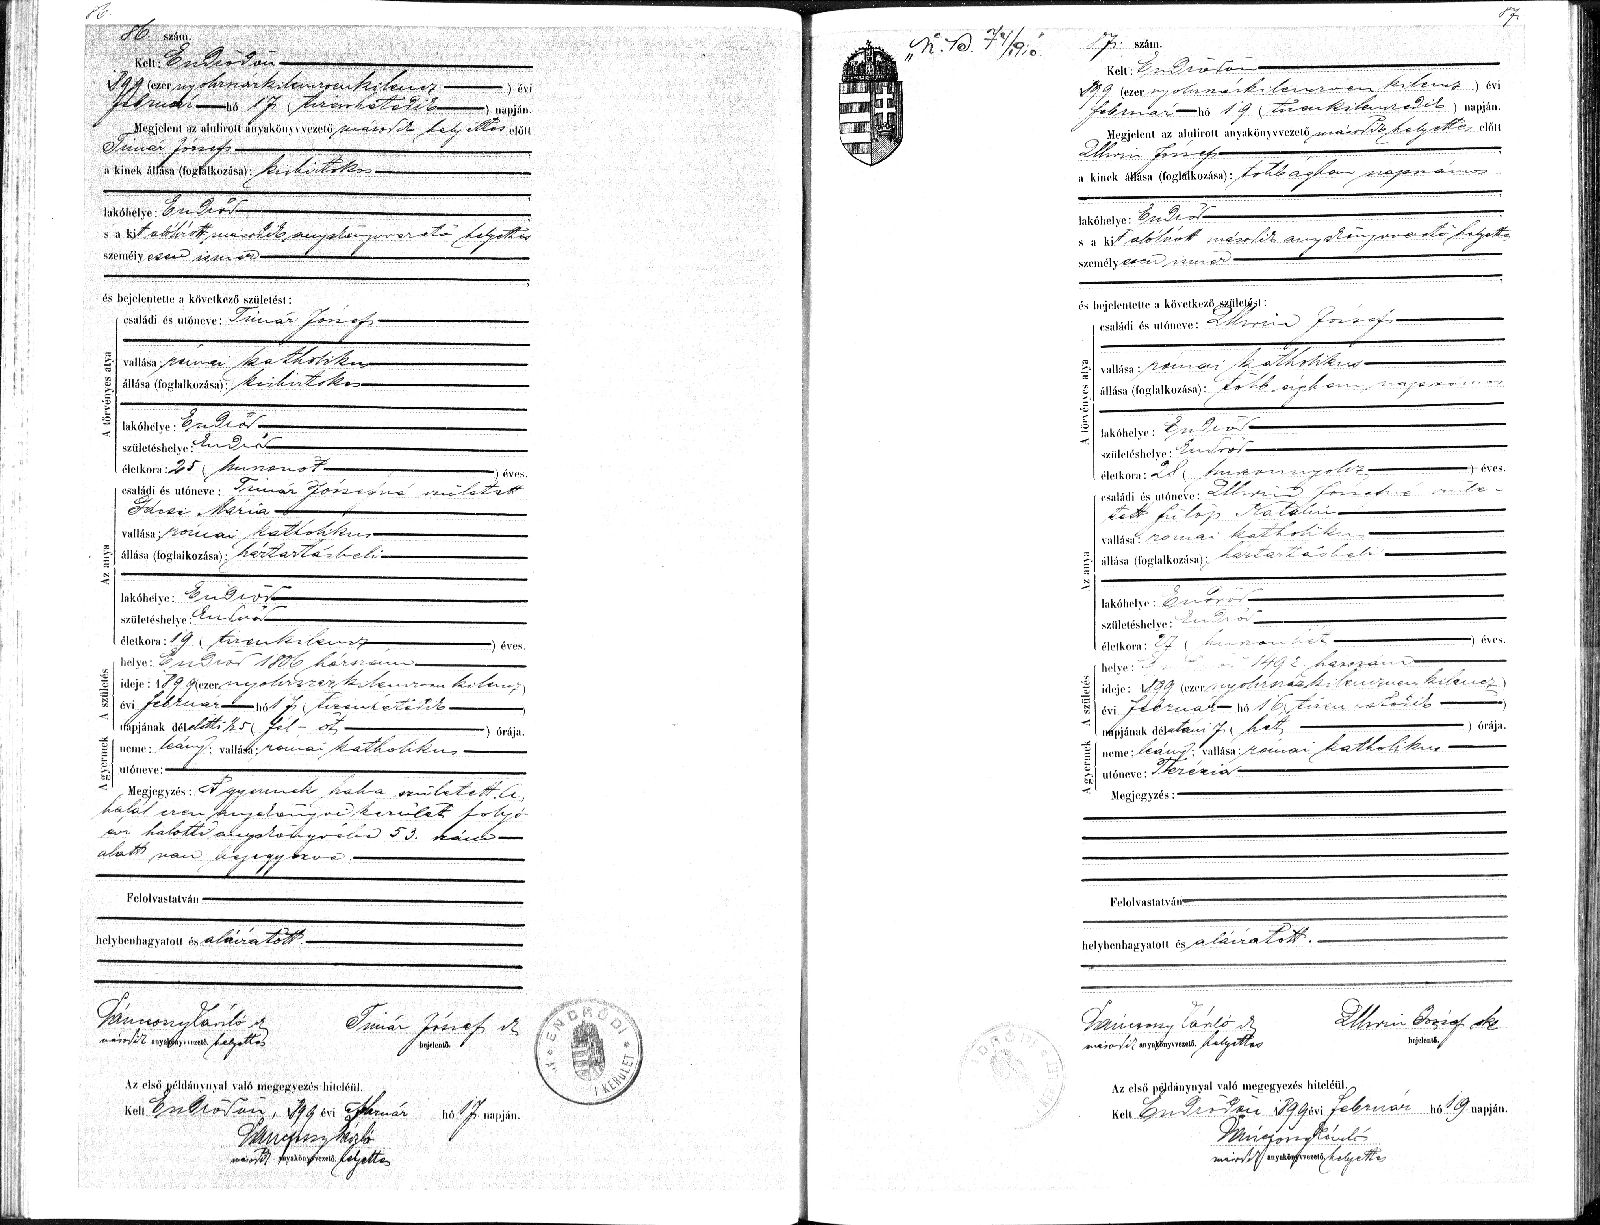 86.
86. szám.
Kelt: Endrődön
1899 (ezer nyolczszázkilenczvenkilencz) évi
február hó 17 (tizenhetedik) napján.
Megjelent az alulirott anyakönyvvezető második helyettes előtt
Timár József
a kinek állása (foglalkozása): kisbirtokos
lakóhelye: Endrőd
s a kit alólirott második anyakönyvvezető helyettes
személyesen ismer
és bejelentette a következő születést:
A törvényes atya
családi és utóneve: Timár József
vallása: római katholikus
állása (foglalkozása): kisbirtokos
lakóhelye: Endrőd
születéshelye: Endrőd
életkora: 25 (huszonöt) éves.
Az anya
családi és utóneve: Timár Józsefné született
Mária
vallása: római katholikus
állása (foglalkozása): háztartásbeli
lakóhelye: Endrőd
születéshelye: Endrőd
életkora: 19 (tizenkilencz) éves.
A születés
helye: Endrőd 1806 házszám
ideje: 1899 (ezernyolczszázkilenczvenkilencz)
évi február hó 17 (tizenhetedik)
napjának délelőtti ½5 (fél öt) órája.
A gyermek
neme: leány; vallása: római katholikus
utóneve:
Megjegyzés: A gyermek halva született. A
halál ezen anyakönyvi kerület folyó
évi halotti anyakönyvében 53. szám
alatt van bejegyezve.
Felolvastatván
helybenhagyatott és aláiratott.
Timár József
második anyakönyvvezető. helyettes
bejelentő.
ENDRŐDI I KERÜLET
Az első példánynyal való megegyezés hiteléül.
Kelt Endrődön, 1899 évi február hó 17 napján.
második anyakönyvvezető. helyettes
87.
87. szám.
Kelt: Endrődön
1899 (ezer nyolczszázkilenczvenkilencz) évi
február hó 19 (tizenkilenczedik) napján.
Megjelent az alulirott anyakönyvvezető második helyettes előtt
József
a kinek állása (foglalkozása): többágban napszámos
lakóhelye: Endrőd
s a kit alólirott második anyakönyvvezető helyettes
személyesen ismer
és bejelentette a következő születést:
A törvényes atya
családi és utóneve: József
vallása: római katholikus
állása (foglalkozása): többágban napszámos
lakóhelye: Endrőd
születéshelye: Endrőd
életkora: 28 (huszonnyolcz) éves.
Az anya
családi és utóneve: Józsefné szüle-
tett Fülöp Katalin
vallása: római katholikus
állása (foglalkozása): háztartásbeli
lakóhelye: Endrőd
születéshelye: Endrőd
életkora: 27 (huszonhét) éves.
A születés
helye: Endrőd 1492 házszám
ideje: 1899 (ezernyolczszázkilenczvenkilencz)
évi február hó 16 (tizenhatodik)
napjának délutáni 7 (hét) órája.
A gyermek
neme: leány; vallása: római katholikus
utóneve: Terézia
Megjegyzés:
Felolvastatván
helybenhagyatott és aláiratott.
József
második anyakönyvvezető. helyettes
bejelentő.
Az első példánynyal való megegyezés hiteléül.
Kelt Endrődön 1899 évi február hó 19 napján.
második anyakönyvvezető. helyettes